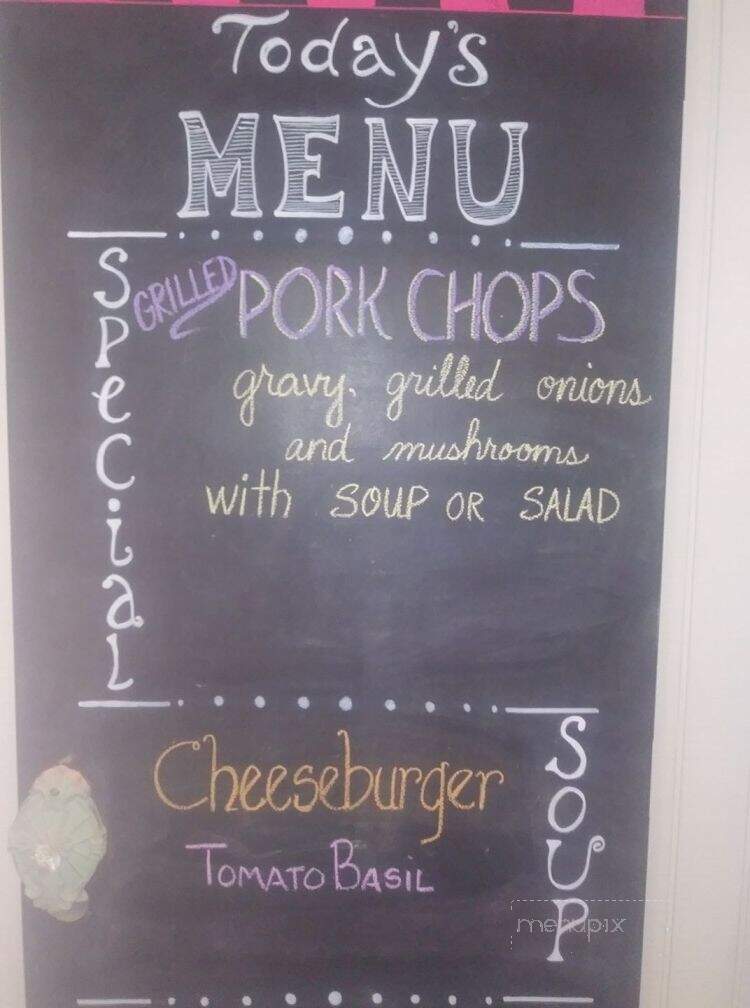 Today's
MENU
Special
GRILLED PORK CHOPS
gravy, grilled onions
and mushrooms
with SOUP OR SALAD
SOUP
Cheeseburger
TOMATO BASIL
menupix